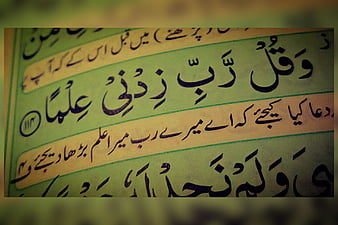 پڑھنے) میں قبل اس کے کہ آپ پ
وَقُلْ رَّبِّ زِدْنِیْ عِلْمًا ﴿۱۱۴﴾
دعا کیا کیجئے کہ اے میرے رب میرا علم بڑھا دیجئے و